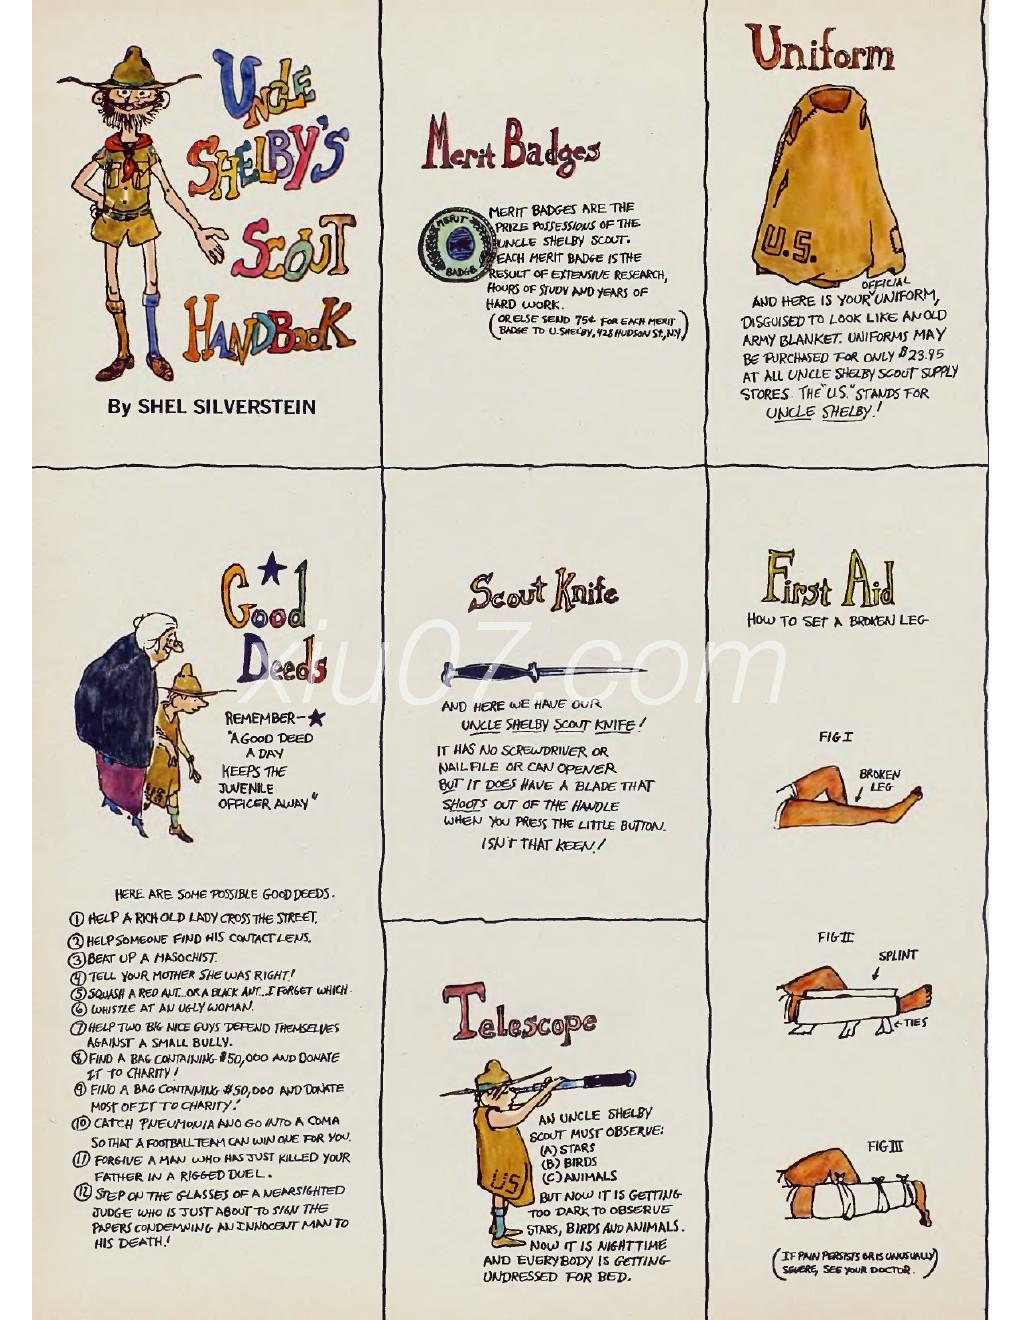 UNCLE
SHELBY'S
SCOUT
HANDBOOK
By SHEL SILVERSTEIN
Merit Badges
MERIT
BADGE
MERIT BADGES ARE THE
PRIZE POSSESSIONS OF THE
UNCLE SHELBY SCOUT.
EACH MERIT BADGE IS THE
RESULT OF EXTENSIVE RESEARCH,
HOURS OF STUDY AND YEARS OF
HARD WORK.
(OR ELSE SEND 75¢ FOR EACH MERIT
BADGE TO U.SHELBY, 428 HUDSON St, N.Y)
Uniform
U.S.
OFFICIAL
AND HERE IS YOUR UNIFORM,
DISGUISED TO LOOK LIKE AN OLD
ARMY BLANKET. UNIFORMS MAY
BE PURCHASED FOR ONLY $23.95
AT ALL UNCLE SHELBY SCOUT SUPPLY
STORES. THE "U.S." STANDS FOR
UNCLE SHELBY!
Good
Deeds
US
REMEMBER—★
"A GOOD DEED
A DAY
KEEPS THE
JUVENILE
OFFICER AWAY"
HERE ARE SOME POSSIBLE GOOD DEEDS.
① HELP A RICH OLD LADY CROSS THE STREET.
② HELP SOMEONE FIND HIS CONTACT LENS.
③ BEAT UP A MASOCHIST.
④ TELL YOUR MOTHER SHE WAS RIGHT!
⑤ SQUASH A RED ANT...OR A BLACK ANT...I FORGET WHICH.
⑥ WHISTLE AT AN UGLY WOMAN.
⑦ HELP TWO BIG NICE GUYS DEFEND THEMSELVES
AGAINST A SMALL BULLY.
⑧ FIND A BAG CONTAINING $50,000 AND DONATE
IT TO CHARITY!
⑨ FIND A BAG CONTAINING $50,000 AND DONATE
MOST OF IT TO CHARITY!
⑩ CATCH PNEUMONIA AND GO INTO A COMA
SO THAT A FOOTBALL TEAM CAN WIN ONE FOR YOU.
⑪ FORGIVE A MAN WHO HAS JUST KILLED YOUR
FATHER IN A RIGGED DUEL.
⑫ STEP ON THE GLASSES OF A NEARSIGHTED
JUDGE WHO IS JUST ABOUT TO SIGN THE
PAPERS CONDEMNING AN INNOCENT MAN TO
HIS DEATH!
Scout Knife
AND HERE WE HAVE OUR
UNCLE SHELBY SCOUT KNIFE!
IT HAS NO SCREWDRIVER OR
NAIL FILE OR CAN OPENER
BUT IT DOES HAVE A BLADE THAT
SHOOTS OUT OF THE HANDLE
WHEN YOU PRESS THE LITTLE BUTTON.
ISN'T THAT KEEN!
Telescope
US
AN UNCLE SHELBY
SCOUT MUST OBSERVE:
(A) STARS
(B) BIRDS
(C) ANIMALS
BUT NOW IT IS GETTING
TOO DARK TO OBSERVE
STARS, BIRDS AND ANIMALS.
NOW IT IS NIGHTTIME
AND EVERYBODY IS GETTING
UNDRESSED FOR BED.
First Aid
HOW TO SET A BROKEN LEG
FIG I
BROKEN
LEG
FIG II
SPLINT
TIES
FIG III
(IF PAIN PERSISTS OR IS UNUSUALLY
SEVERE, SEE YOUR DOCTOR.)
xiu07.com